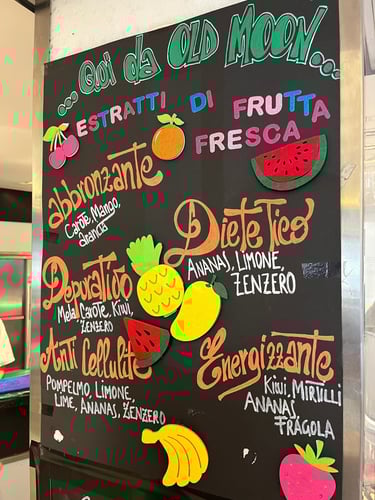 ...Qui da OLD MOON...
ESTRATTI DI FRUTTA
FRESCA
abbronzante
Carote, Mango,
Arancia
Dietetico
ANANAS, LIMONE,
ZENZERO
Depurativo
Mela, Carote, Kiwi,
ZENZERO
Anti Cellulite
POMPELMO, LIMONE,
LIME, ANANAS, ZENZERO
Energizzante
Kiwi, Mirtilli
ANANAS,
FRAGOLA